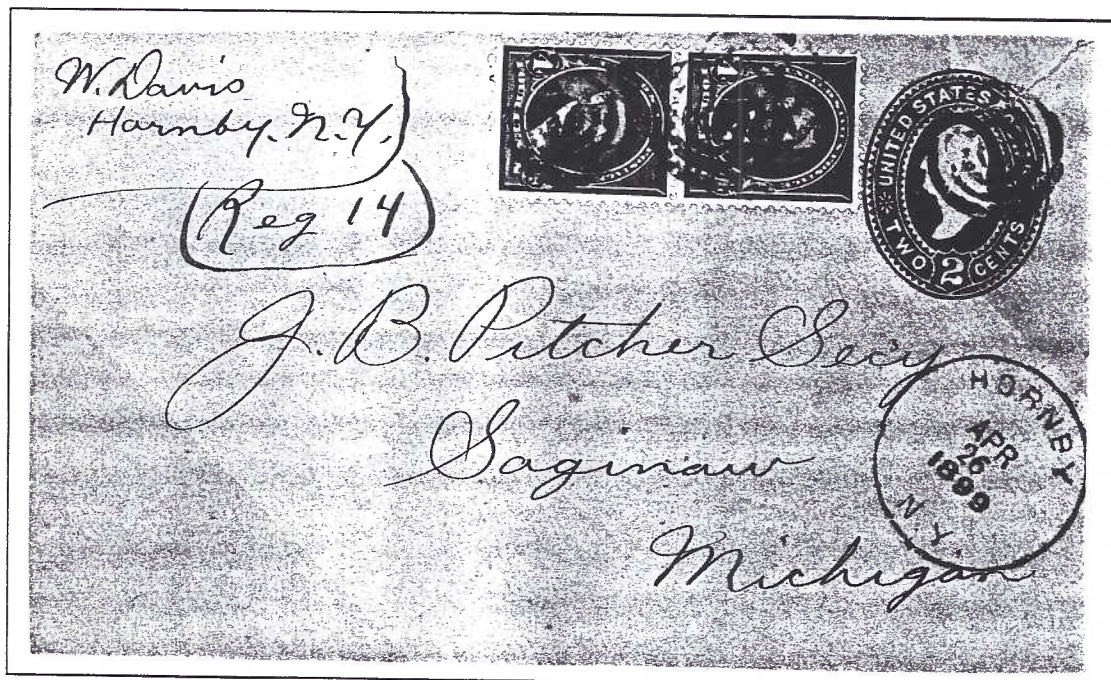 W. Davis
Hornby. N.Y.
Reg 14
UNITED STATES
TWO 2 CENTS
J. B. Pitcher Secy
Saginaw
Michigan
HORNBY
APR
26
1899
N.Y.